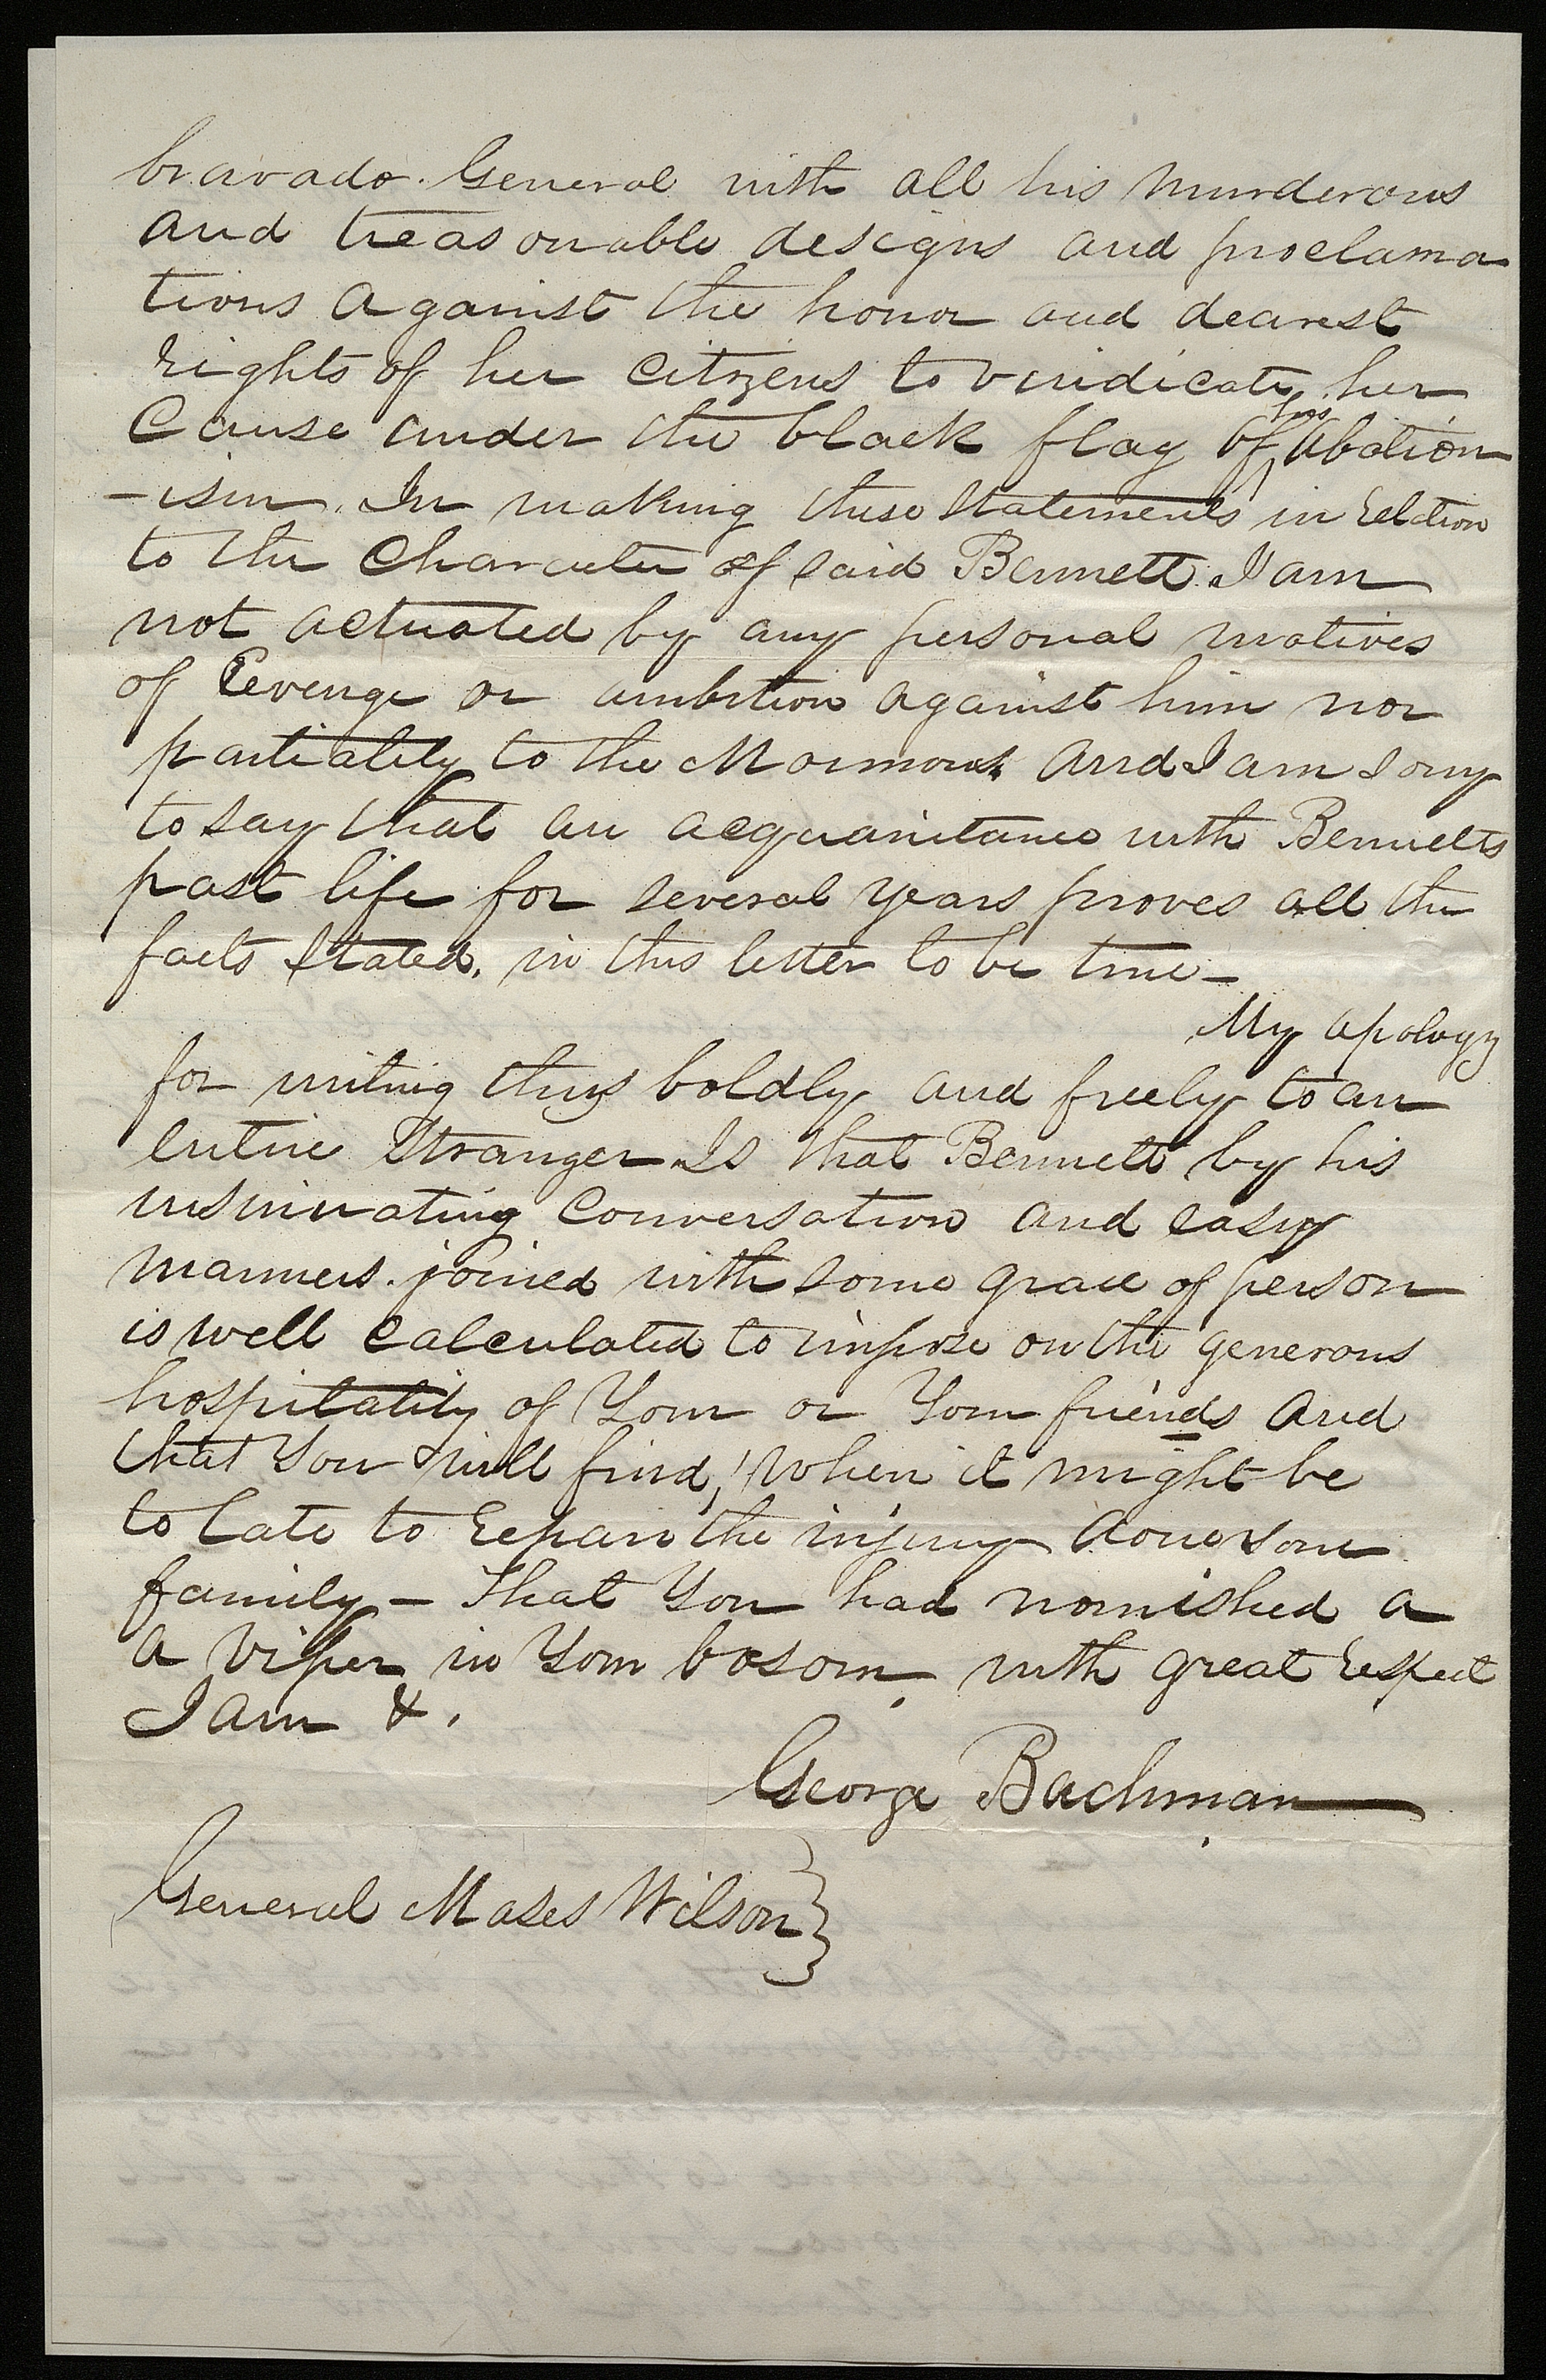 bravado. General with all his murderous
and treasonable designs and proclama
tions against the honor and dearest
rights of her Citizens to vindicate her
Cause under the black flag of his Abolition
-ism. In making these Statements in relation
to the Character of said Bennett. I am
not actuated by any personal motives
of Revenge or ambition against him nor
partiality to the Mormons and I am sorry
to say that an acquaintance with Bennetts
past life for several years proves all the
facts stated, in this letter to be true—
My apology
for writing thus boldly and freely to an
entire Stranger Is that Bennett by his
insinuating Conversation and easy
manners. joined with some grace of person
is well calculated to impose on the generous
hospitality of Your or Your friends and
that You will find, when it might be
to late to repair the injury done your
family— That You had nourished a
a viper in Your bosom. with great respect
I am &.
George Bachman
General Moses Wilson }